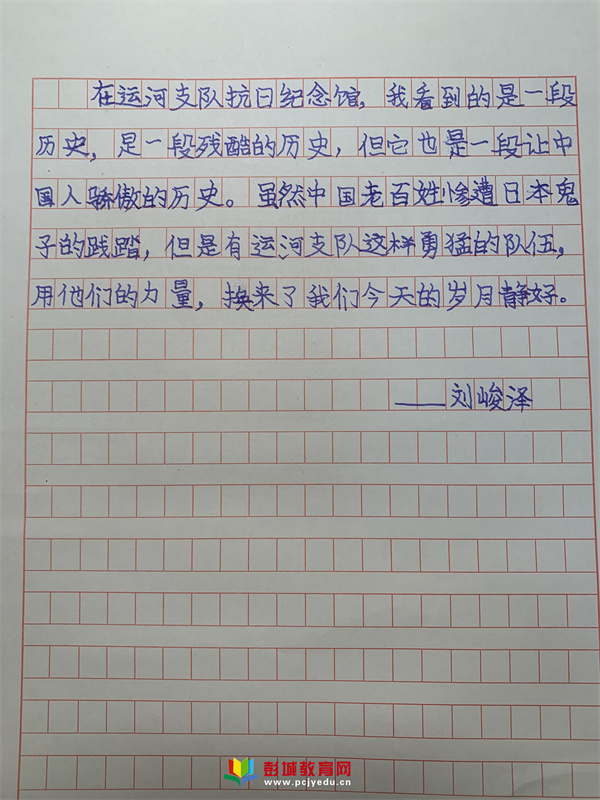 在运河支队抗日纪念馆，我看到的是一段
历史，是一段残酷的历史，但它也是一段让中
国人骄傲的历史。虽然中国老百姓惨遭日本鬼
子的践踏，但是有运河支队这样勇猛的队伍，
用他们的力量，换来了我们今天的岁月静好。
——刘峻泽
彭城教育网
www.pcjyedu.cn